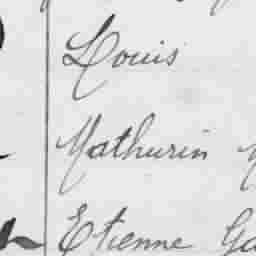 Louis
Mathurin
Etienne Ga